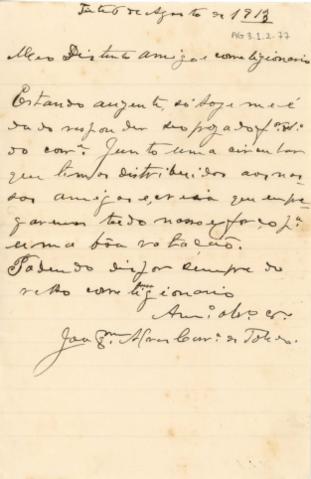 de Agosto de 1913
AG 3.1.2.77
Meu Distinto amigo e correligionario
Estando auzente, só hoje me é
dado responder seo prezado
do corre. Junto uma circular
que temos distribuidos aos nos-
sos amigos e, creia que empe-
garemos todo nosso esforço pa
uma bôa votação.
Podendo dispor sempre do
correligionario
Amo. obro. cro.
Joaqm. Alves Carvo. de Toledo.